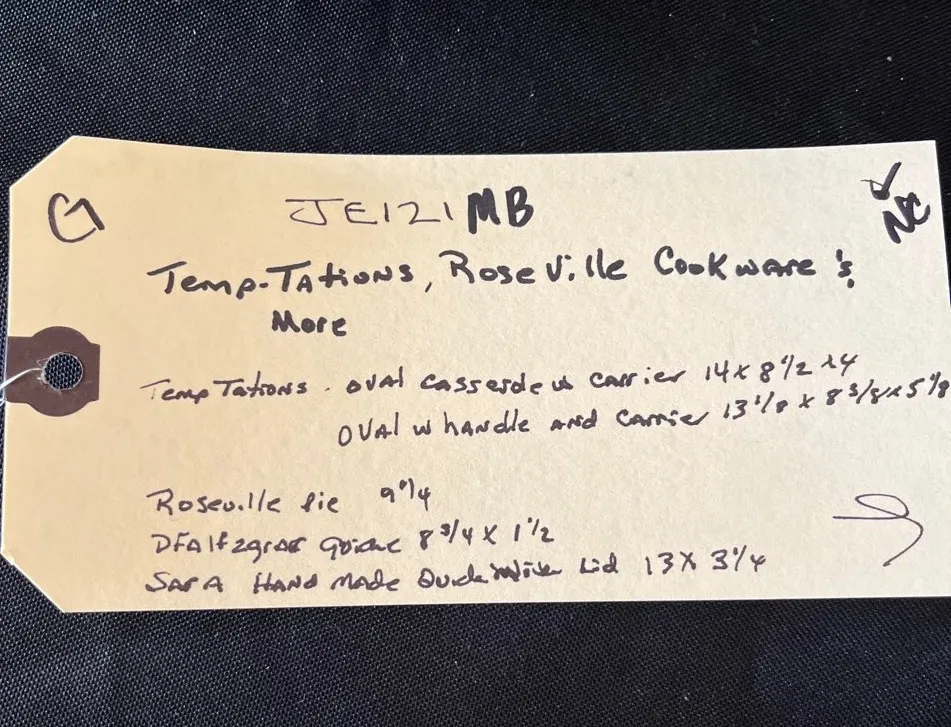 G
JE121MB
NC
Temp-Tations, Roseville Cookware &
More
TempTations. oval casserole w carrier 14 x 8 1/2 x 4
oval w handle and carrier 13 1/8 x 8 5/8 x 5 1/8
Roseville Pie 9 1/4
Quiche 8 3/4 x 1 1/2
Sara Hand Made Duck Lid 13 x 3 1/4